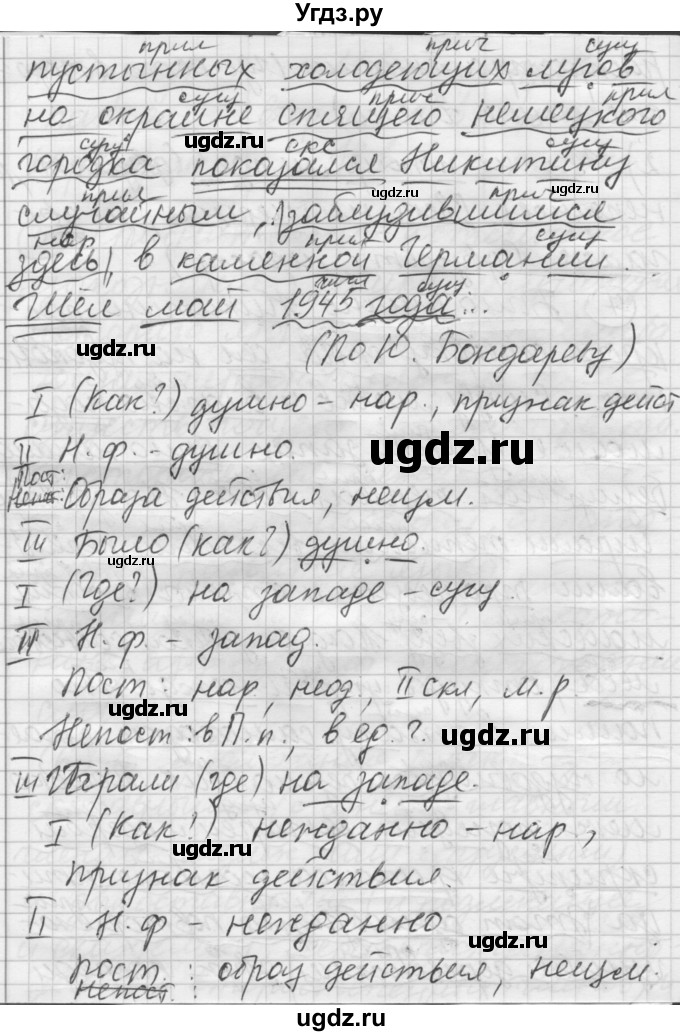 Угдз.ру
прил прич сущ
пустынных холодеющих лугов
сущ прич прил
на окраине спящего немецкого
сущ скс сущ
городка показался Никитину
прил прич
случайным, заблудившимся
нар прил сущ
здесь, в каменной Германии.
числ сущ
Шёл май 1945 года...
(По Ю. Бондареву)
I (Как?) душно - нар., признак дейст
II Н.ф. - душно.
Пост:
Непост: Образа действия, неизм.
III Было (как?) душно.
I (Где?) на западе - сущ.
II Н.ф. - запад.
Пост: нар, неод, II скл, м.р.
Непост: в П.п., в ед.ч.
III Играли (где) на западе.
I (Как?) нежданно - нар,
признак действия.
II Н.ф - нежданно
пост.: образ действия, неизм.
непост.:
ugdz.ru
ugdz.ru
ugdz.ru
ugdz.ru
ugdz.ru
ugdz.ru
ugdz.ru
ugdz.ru
ugdz.ru
ugdz.ru
ugdz.ru
ugdz.ru
Угдз.ру